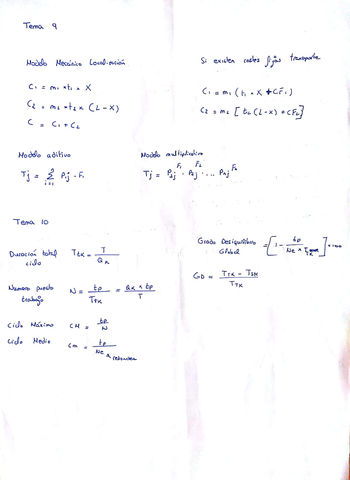 Tema 9
Modelo Mecánico Localización
C1 = m1 * t1 * X
C2 = m2 * t2 * (L - X)
C = C1 + C2
Si existen costes fijos transporte
C1 = m1 (t1 * X + CF1)
C2 = m2 [t2 (L - X) + CF2]
Modelo aditivo
Tj = Σ i=1 Pij · Fi
Modelo multiplicativo
Tj = P1j^F1 · P2j^F2 · ... Pnj^Fn
Tema 10
Duración total ciclo TTK = T / QK
Numero puesto trabajo N = tp / TTK = QK * tp / T
Ciclo Máximo CM = tp / N
Ciclo Medio Cm = tp / NE
Grado Desequilibrio Global = [1 - tp / NE *
GD = TTK -
TTK